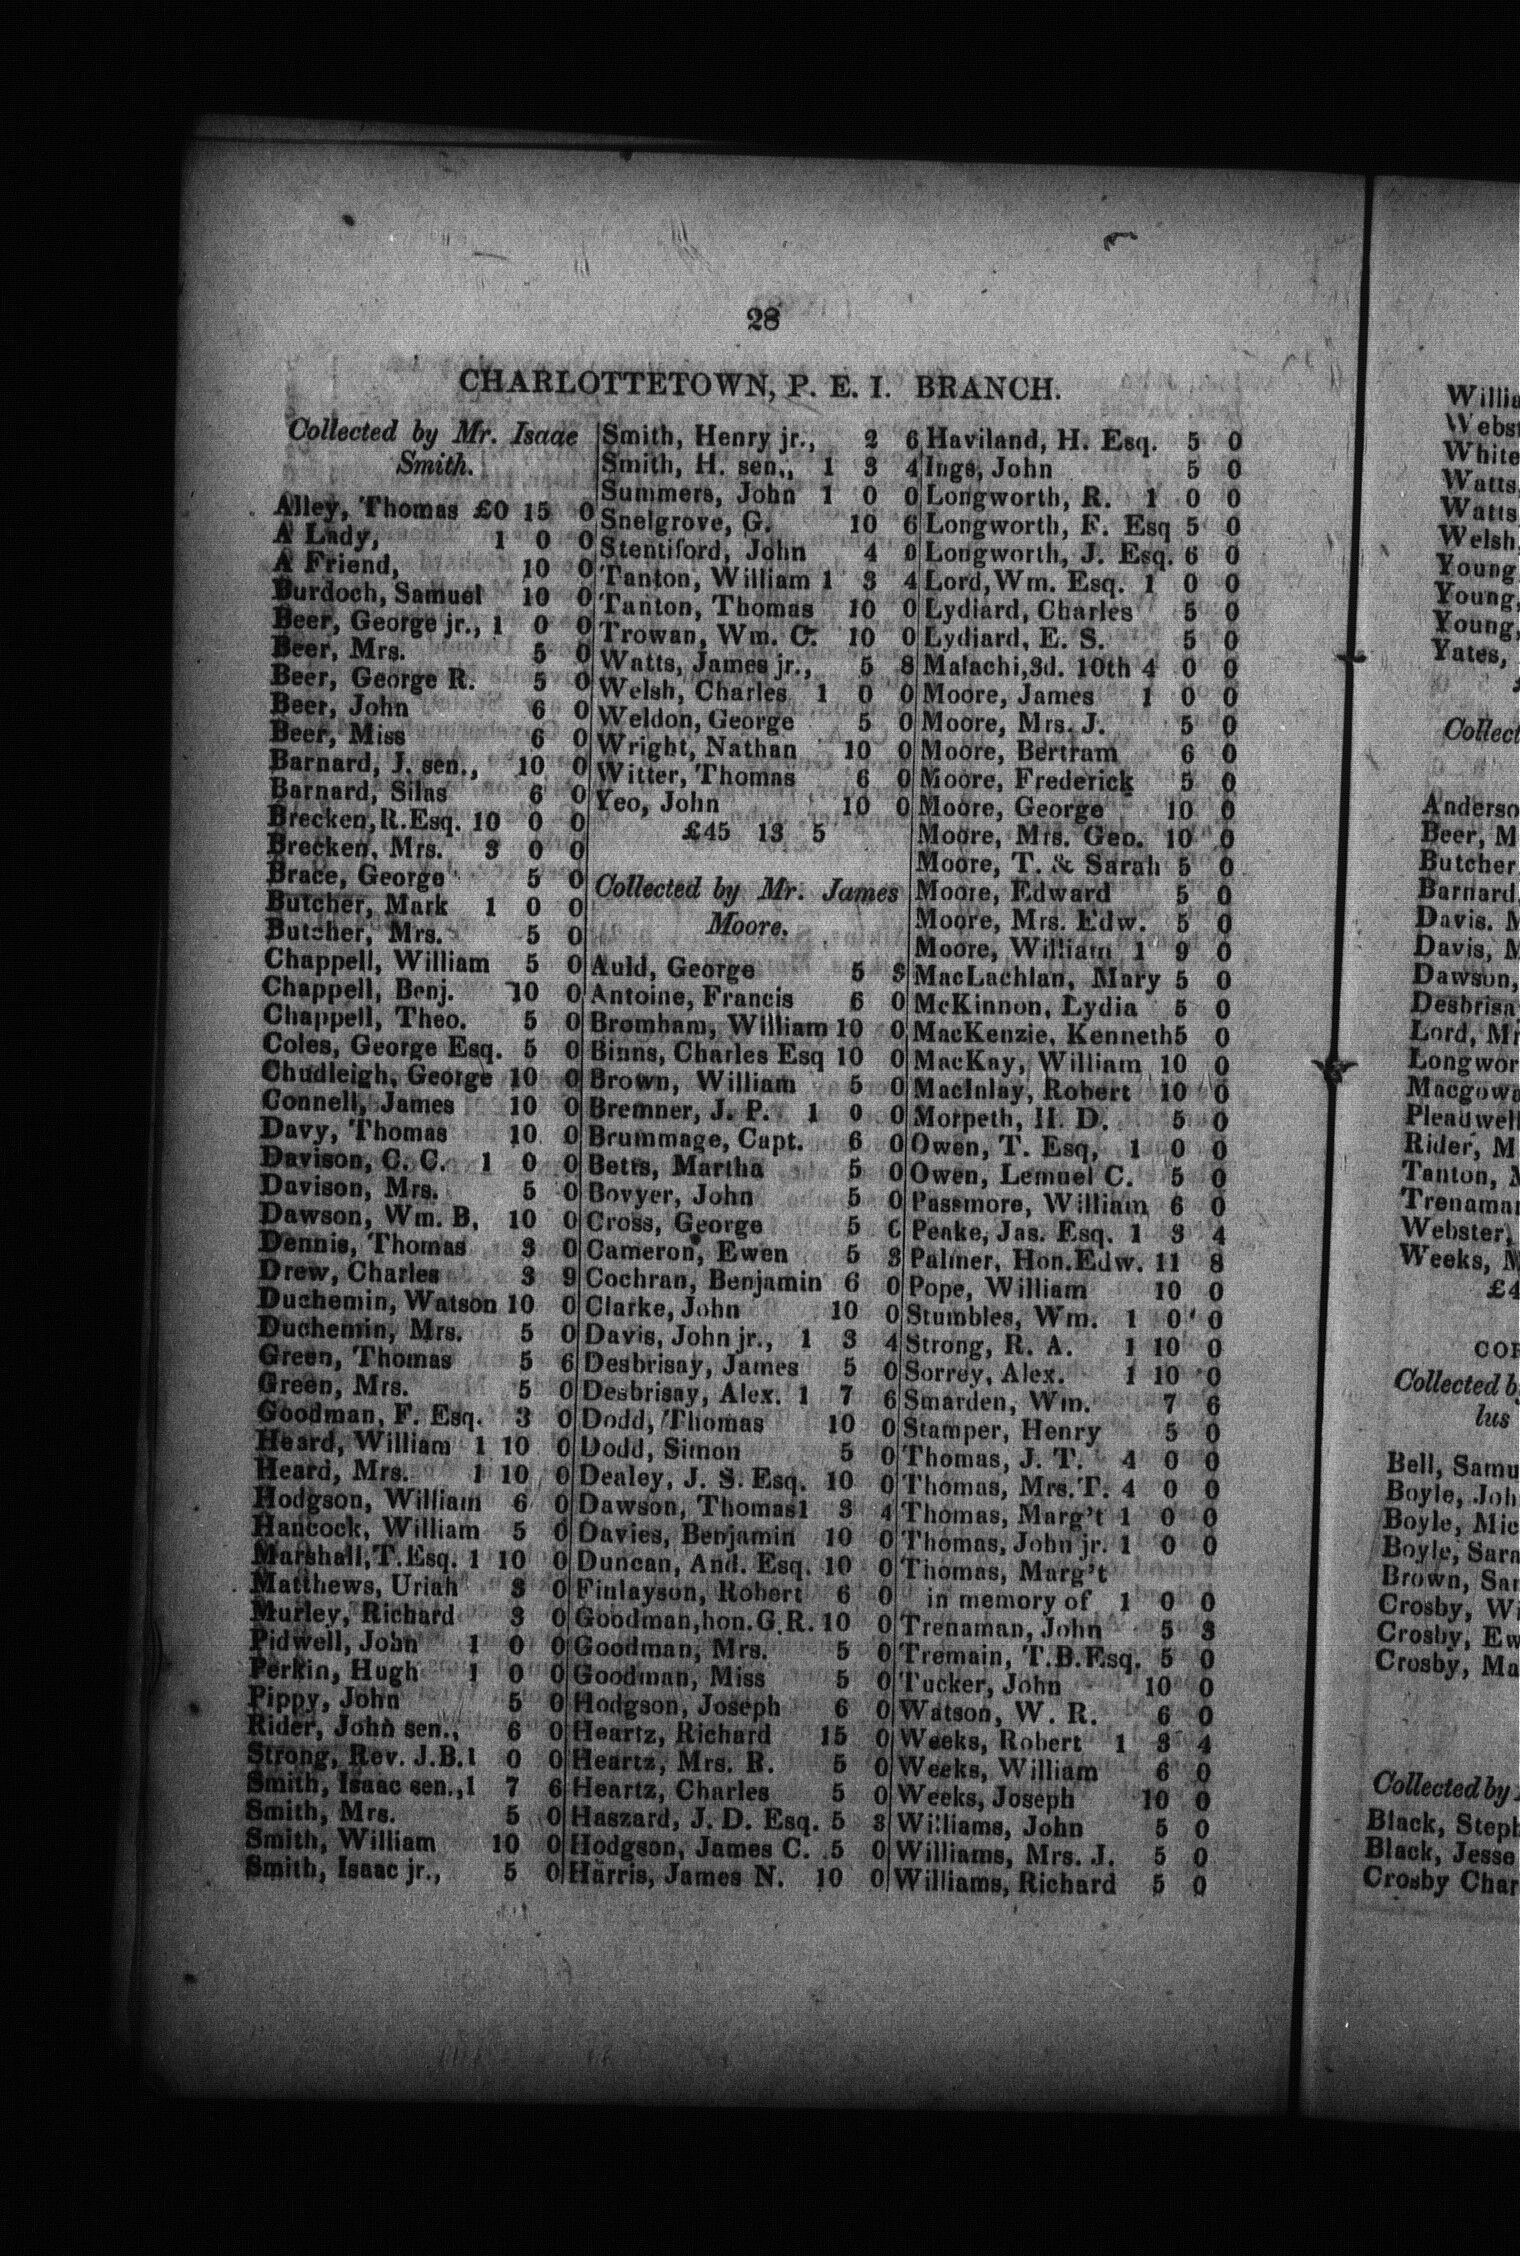 28
CHARLOTTETOWN, P. E. I. BRANCH.
Collected by Mr. Isaac
Smith.
Alley, Thomas £0 15 0
A Lady, 1 0 0
A Friend, 10 0
Burdoch, Samuel 10 0
Beer, George jr., 1 0 0
Beer, Mrs. 5 0
Beer, George R. 5 0
Beer, John 6 0
Beer, Miss 6 0
Barnard, J. sen., 10 0
Barnard, Silas 6 0
Brecken, R. Esq. 10 0 0
Brecken, Mrs. 3 0 0
Brace, George 5 0
Butcher, Mark 1 0 0
Butcher, Mrs. 5 0
Chappell, William 5 0
Chappell, Benj. 10 0
Chappell, Theo. 5 0
Coles, George Esq. 5 0
Chudleigh, George 10 0
Connell, James 10 0
Davy, Thomas 10 0
Davison, C. C. 1 0 0
Davison, Mrs. 5 0
Dawson, Wm. B. 10 0
Dennis, Thomas 3 0
Drew, Charles 3 9
Duchemin, Watson 10 0
Duchemin, Mrs. 5 0
Green, Thomas 5 6
Green, Mrs. 5 0
Goodman, F. Esq. 3 0
Heard, William 1 10 0
Heard, Mrs. 1 10 0
Hodgson, William 6 0
Hancock, William 5 0
Marshall, T. Esq. 1 10 0
Matthews, Uriah 3 0
Murley, Richard 3 0
Pidwell, John 1 0 0
Perkin, Hugh 1 0 0
Pippy, John 5 0
Rider, John sen., 6 0
Strong, Rev. J.B. 1 0 0
Smith, Isaac sen., 1 7 6
Smith, Mrs. 5 0
Smith, William 10 0
Smith, Isaac jr., 5 0
Smith, Henry jr., 2 6
Smith, H. sen., 1 3 4
Summers, John 1 0 0
Snelgrove, G. 10 6
Stentiford, John 4 0
Tanton, William 1 3 4
Tanton, Thomas 10 0
Trowan, Wm. C. 10 0
Watts, James jr., 5 8
Welsh, Charles 1 0 0
Weldon, George 5 0
Wright, Nathan 10 0
Witter, Thomas 6 0
Yeo, John 10 0
£45 13 5
Collected by Mr. James
Moore.
Auld, George 5 3
Antoine, Francis 6 0
Bromham, William 10 0
Binns, Charles Esq 10 0
Brown, William 5 0
Bremner, J. P. 1 0 0
Brummage, Capt. 6 0
Betts, Martha 5 0
Bovyer, John 5 0
Cross, George 5 0
Cameron, Ewen 5 3
Cochran, Benjamin 6 0
Clarke, John 10 0
Davis, John jr., 1 3 4
Desbrisay, James 5 0
Desbrisay, Alex. 1 7 6
Dodd, Thomas 10 0
Dodd, Simon 5 0
Dealey, J. S. Esq. 10 0
Dawson, Thomas 1 3 4
Davies, Benjamin 10 0
Duncan, And. Esq. 10 0
Finlayson, Robert 6 0
Goodman, hon. G.R. 10 0
Goodman, Mrs. 5 0
Goodman, Miss 5 0
Hodgson, Joseph 6 0
Heartz, Richard 15 0
Heartz, Mrs. R. 5 0
Heartz, Charles 5 0
Haszard, J. D. Esq. 5 3
Hodgson, James C. 5 0
Harris, James N. 10 0
Haviland, H. Esq. 5 0
Ings, John 5 0
Longworth, R. 1 0 0
Longworth, F. Esq 5 0
Longworth, J. Esq. 6 0
Lord, Wm. Esq. 1 0 0
Lydiard, Charles 5 0
Lydiard, E. S. 5 0
Malachi, 3d. 10th 4 0 0
Moore, James 1 0 0
Moore, Mrs. J. 5 0
Moore, Bertram 6 0
Moore, Frederick 5 0
Moore, George 10 0
Moore, Mrs. Geo. 10 0
Moore, T. & Sarah 5 0
Moore, Edward 5 0
Moore, Mrs. Edw. 5 0
Moore, William 1 9 0
MacLachlan, Mary 5 0
McKinnon, Lydia 5 0
MacKenzie, Kenneth 5 0
MacKay, William 10 0
MacInlay, Robert 10 0
Morpeth, H. D. 5 0
Owen, T. Esq, 1 0 0
Owen, Lemuel C. 5 0
Passmore, William 6 0
Peake, Jas. Esq. 1 3 4
Palmer, Hon. Edw. 11 8
Pope, William 10 0
Stumbles, Wm. 1 0 0
Strong, R. A. 1 10 0
Sorrey, Alex. 1 10 0
Smarden, Wm. 7 6
Stamper, Henry 5 0
Thomas, J. T. 4 0 0
Thomas, Mrs. T. 4 0 0
Thomas, Marg't 1 0 0
Thomas, John jr. 1 0 0
Thomas, Marg't
in memory of 1 0 0
Trenaman, John 5 3
Tremain, T.B. Esq. 5 0
Tucker, John 10 0
Watson, W. R. 6 0
Weeks, Robert 1 3 4
Weeks, William 6 0
Weeks, Joseph 10 0
Williams, John 5 0
Williams, Mrs. J. 5 0
Williams, Richard 5 0
Willia
Webst
White
Watts,
Watts
Welsh,
Young
Young,
Young,
Yates,
Collect
Anderso
Beer, M
Butcher
Barnard,
Davis. M
Davis, M
Dawson,
Desbrisa
Lord, Mr
Longwor
Macgowa
Pleadwell
Rider, M
Tanton, M
Trenaman
Webster,
Weeks, M
£4
COR
Collected b
lus
Bell, Samu
Boyle, Joh
Boyle, Mic
Boyle, Sara
Brown, Sam
Crosby, Wi
Crosby, Ew
Crosby, Ma
Collected by
Black, Steph
Black, Jesse
Crosby Char